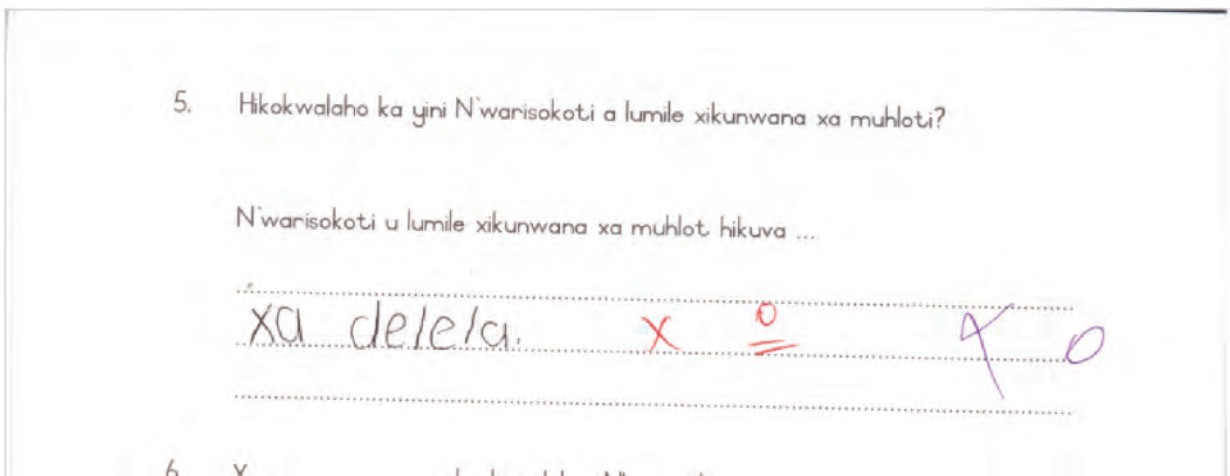 5. Hikokwalaho ka yini N'warisokoti a lumile xikunwana xa muhloti?
N'warisokoti u lumile xikunwana xa muhlot hikuva ...
xa delela. x 0 0
6.